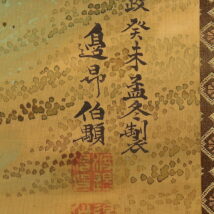 政癸未孟冬製
邊昂伯顯